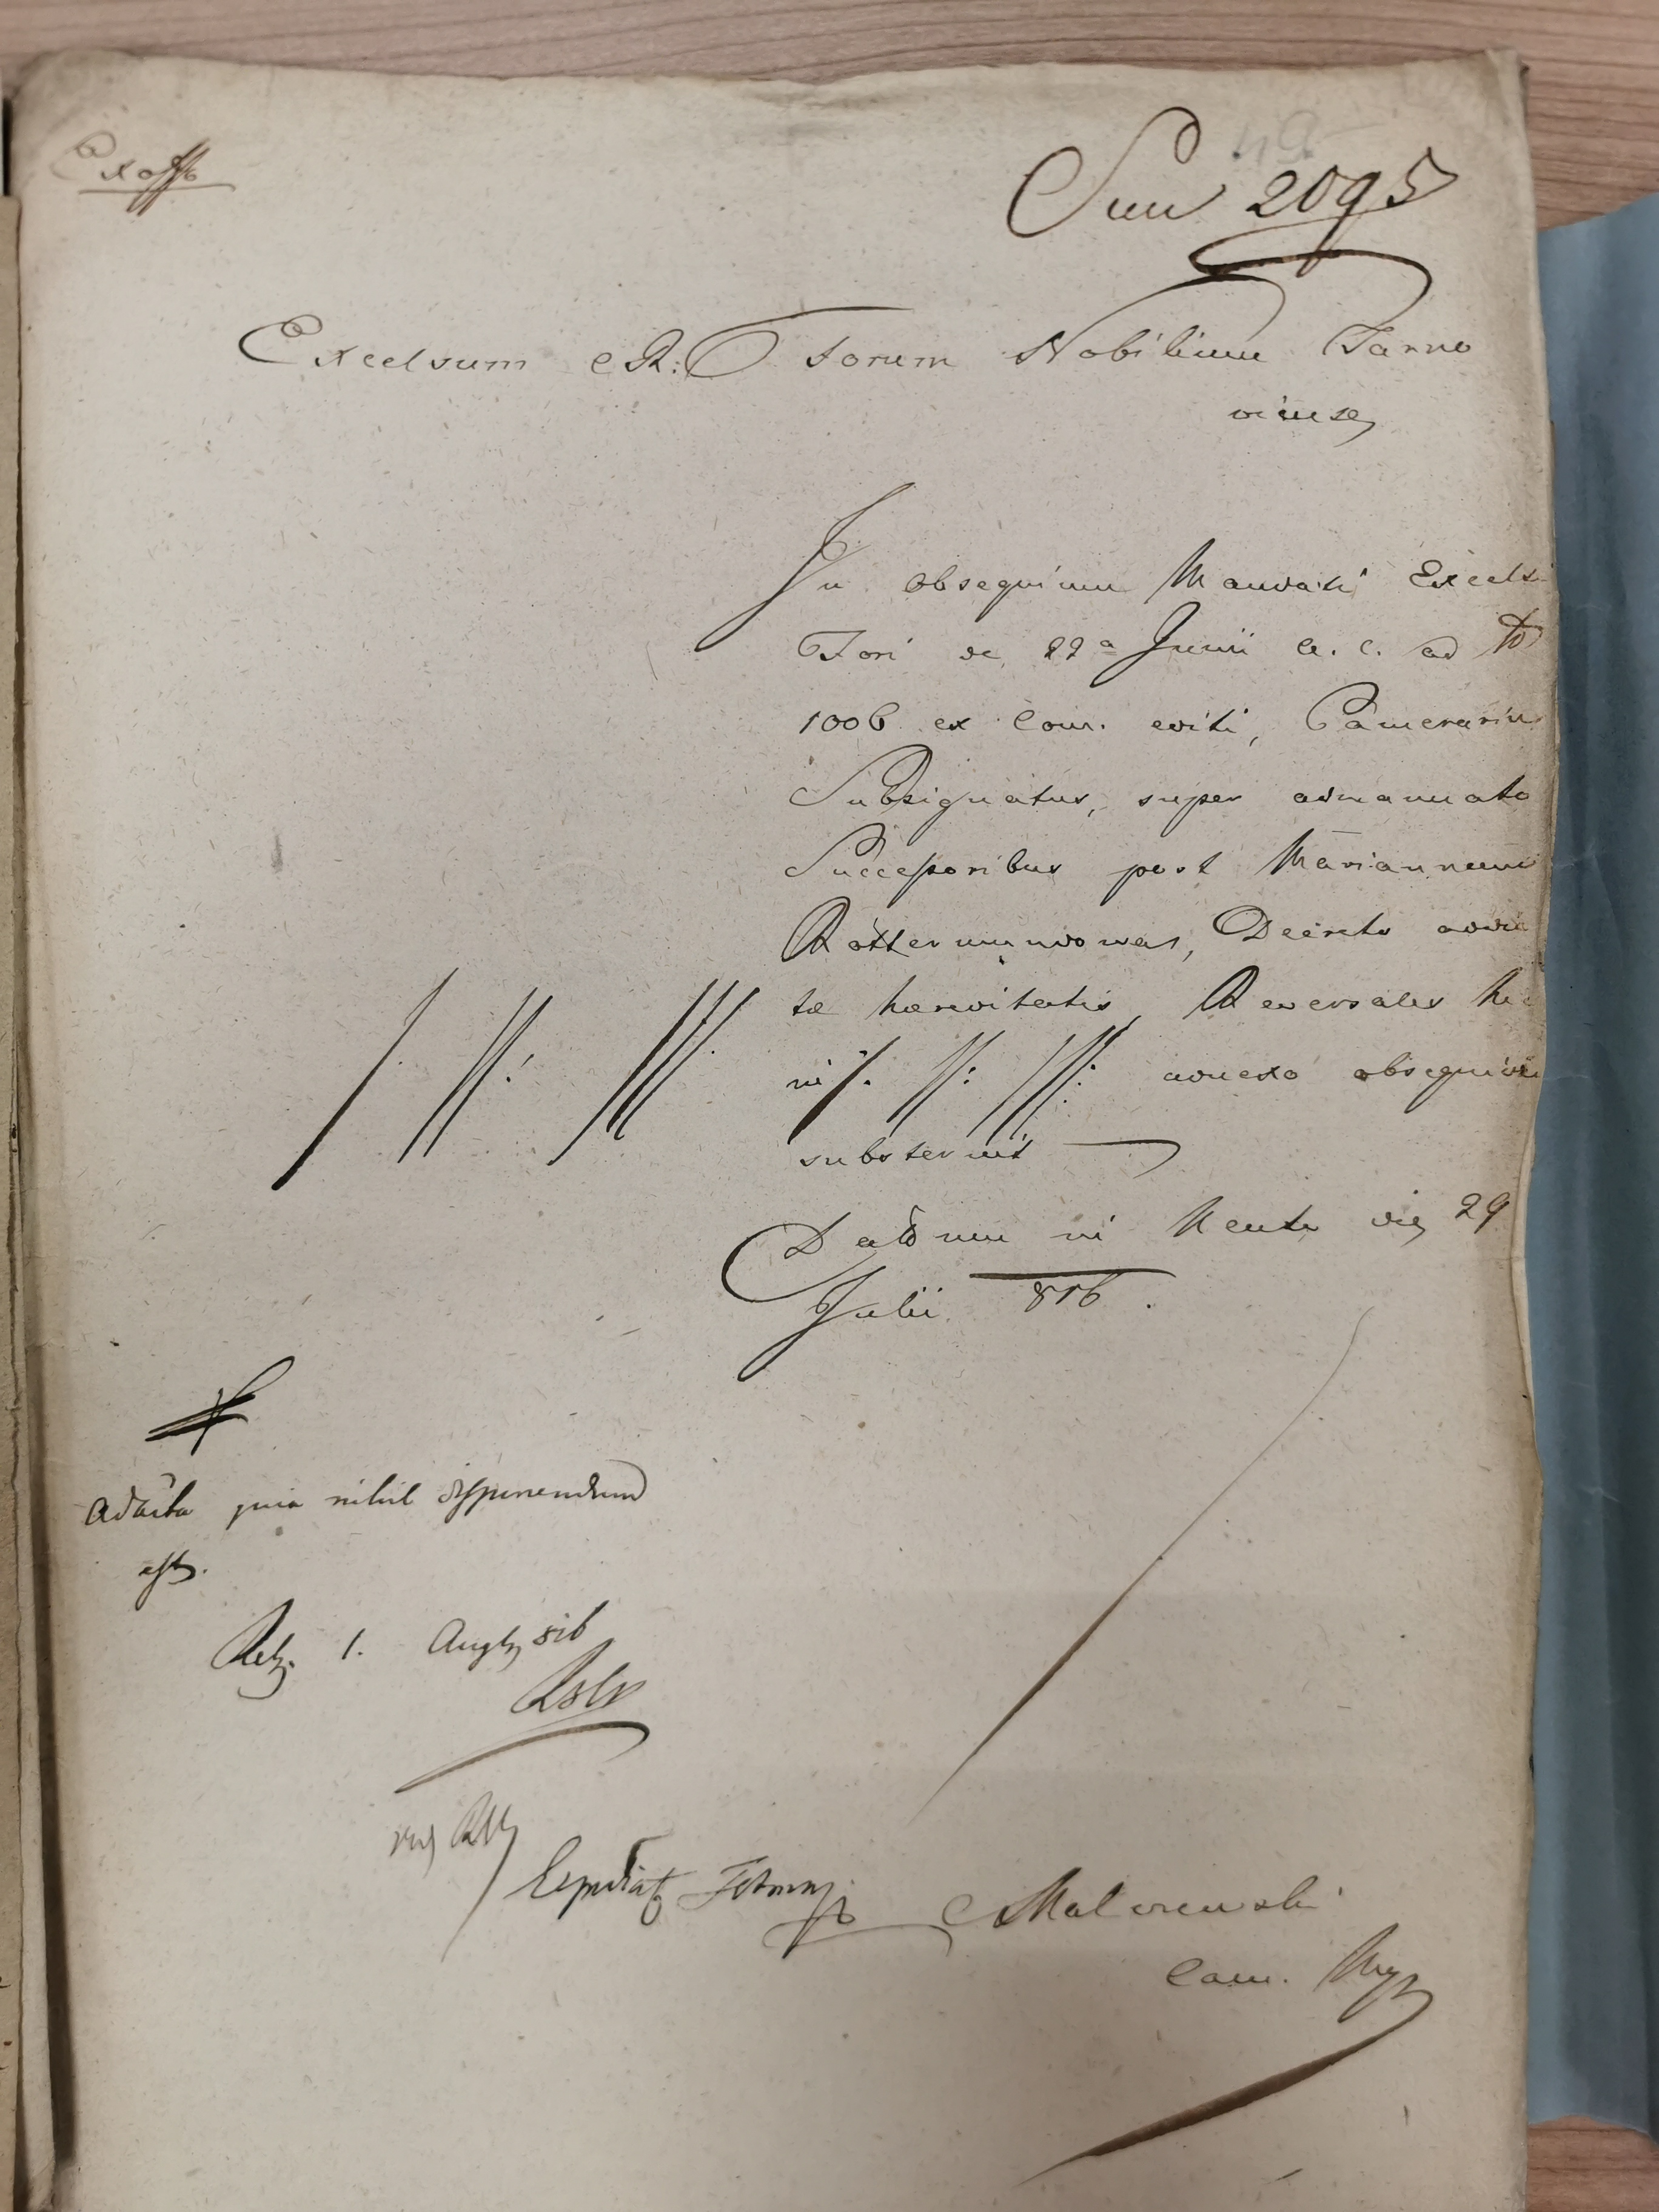 Exoffo
Num 2095
Excelsum C. R. Forum Nobilium Tarno
viense,
In obsequium Mandati Excelsi
Fori de 22a Junii a. c. ad No
1006 ex Com. editi, Camerarius
Subsignatus, super admanuato
Successoribus post Mariannam
Rottermundowa, Decreto addic
tæ hæreditatis, Reversales hic
ni /. //: ///: adnexo obsequio
substernit
Datum in Kenty die 29
Julii 816.
/. //: ///.
Ad acta quia nihil disponendum
est.
1. Augti 816
Expediat
Malczewski
Cam.